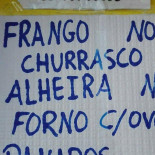 FRANGO NO
CHURRASCO
ALHEIRA N
FORNO C/OV